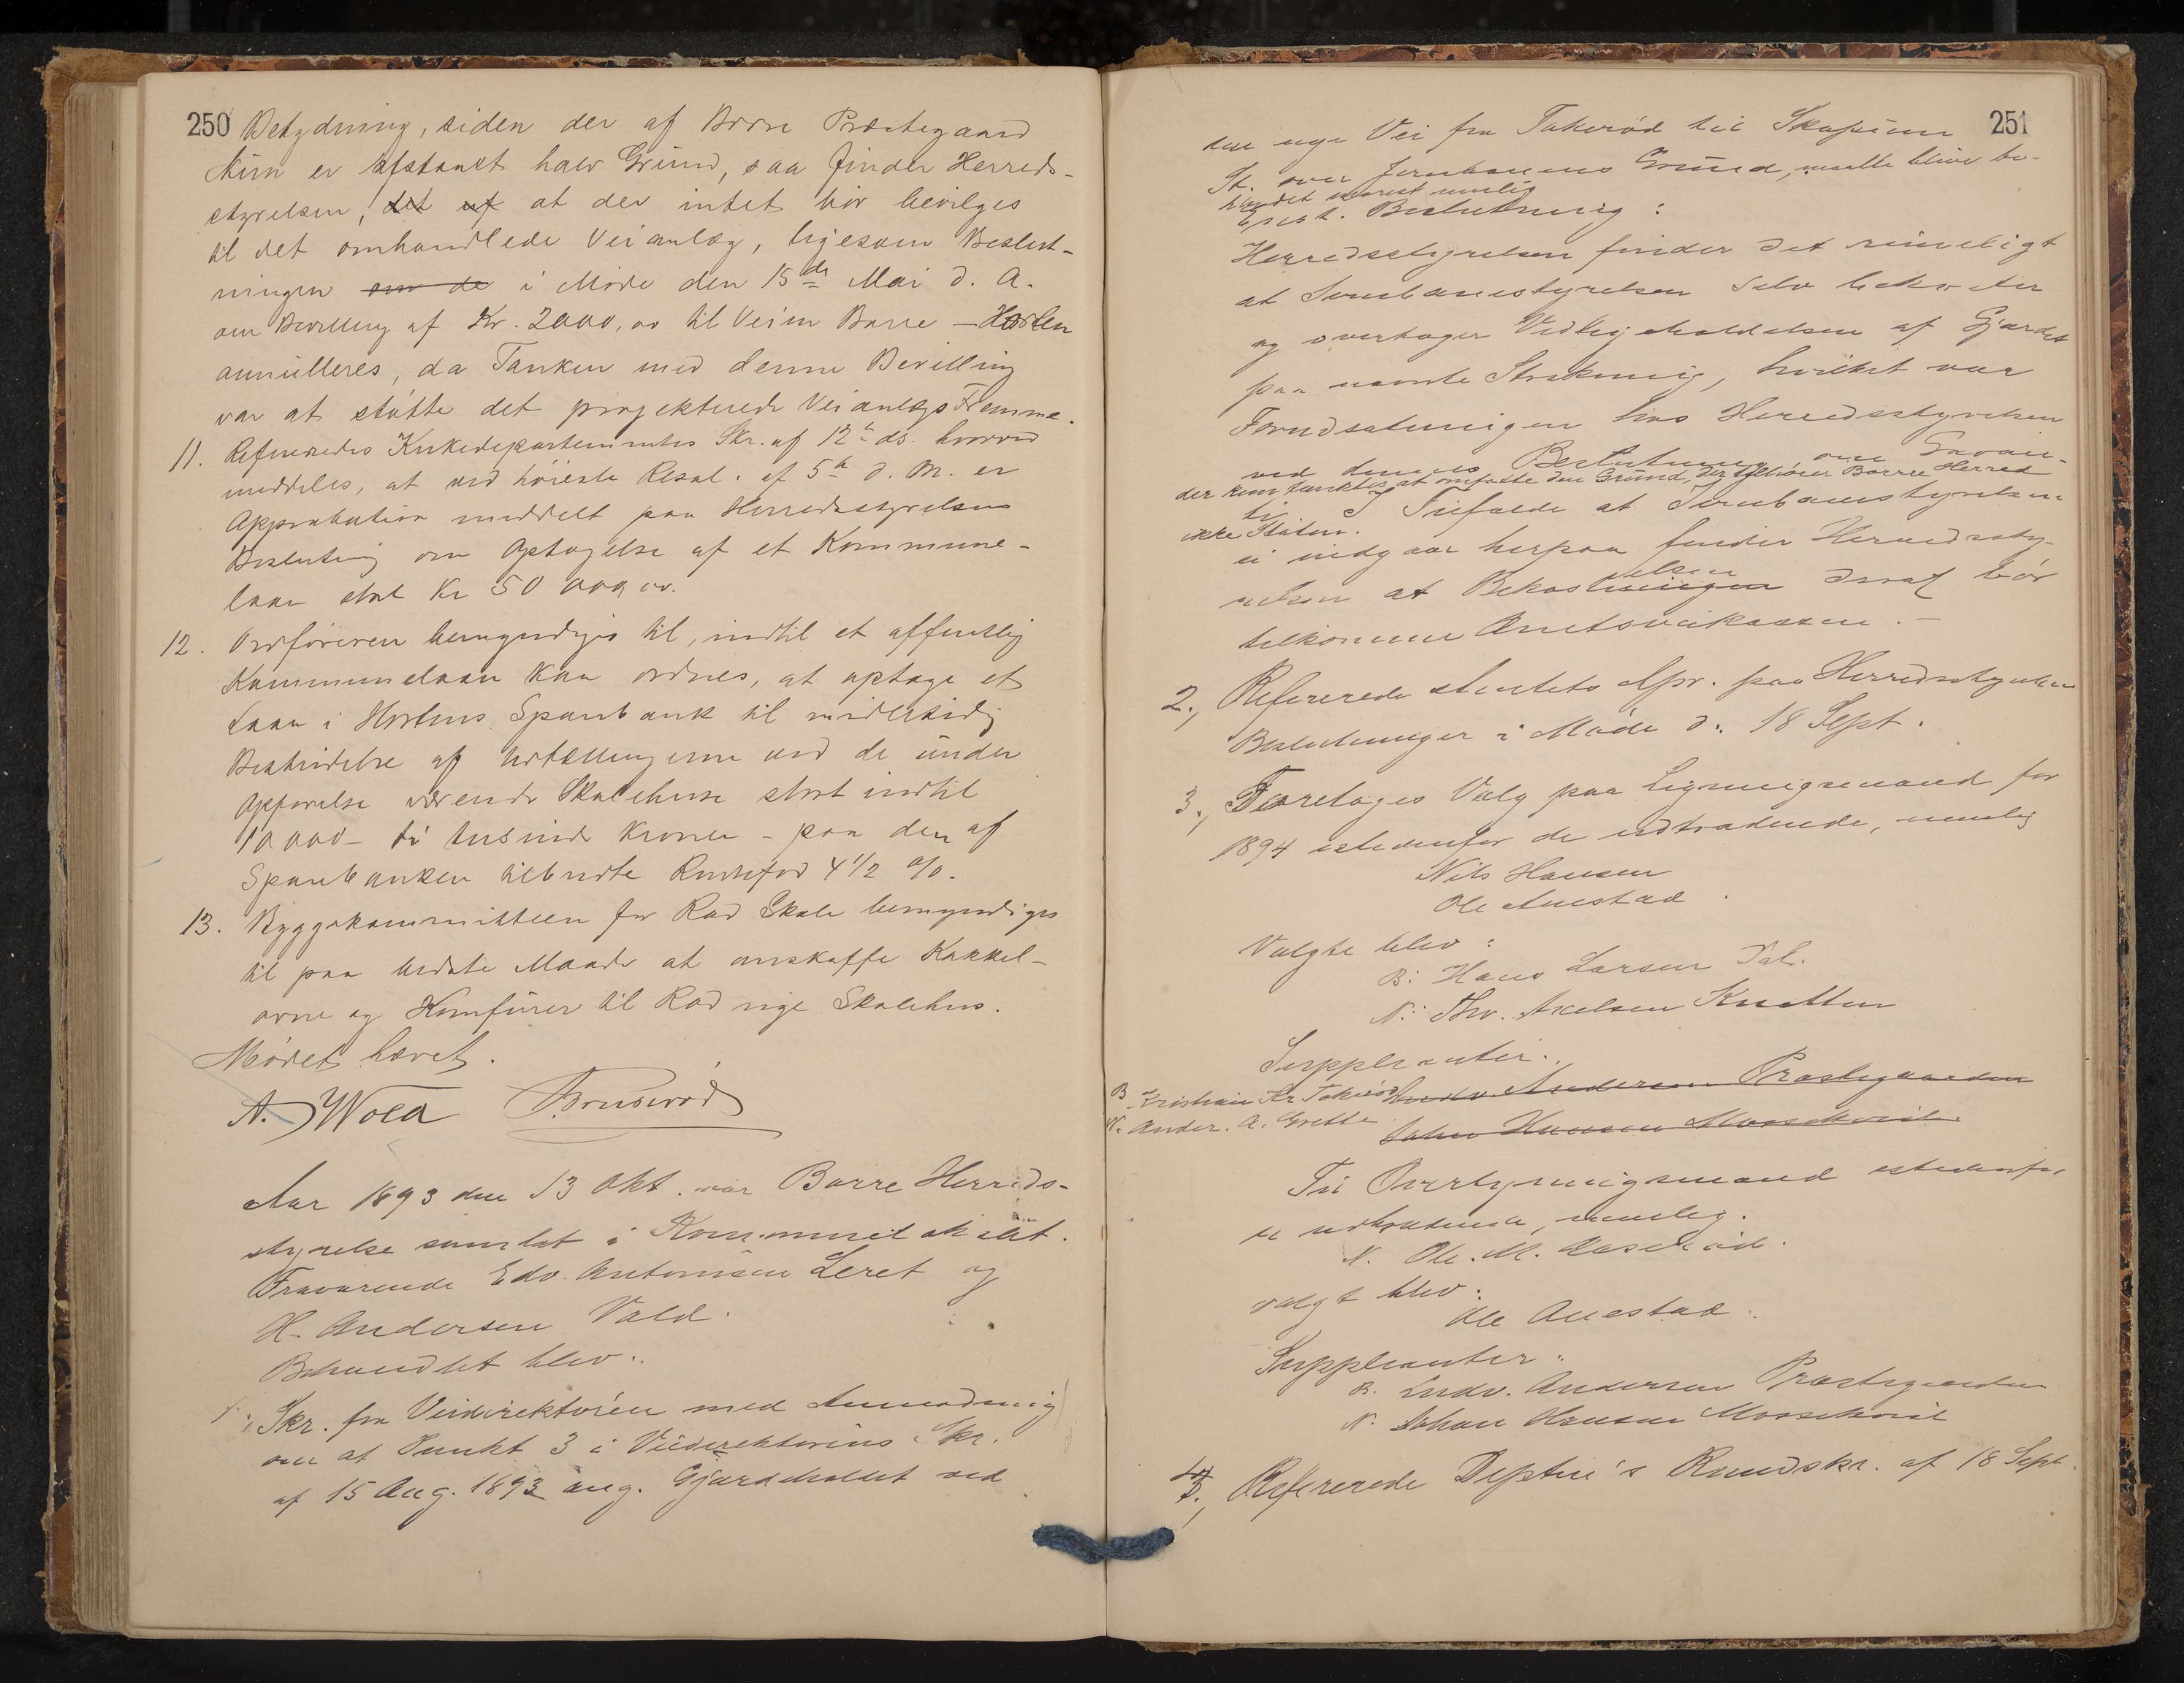 250 Betydning, siden der af Borre Præstegaard
kun er afstaaet halv Grund, saa finder Herreds-
styrelsen, det af at der intet bör bevilges
til det omhandlede Veianlæg, ligesom Beslut-
ningen om de i Möde den 15de Mai d. A.
om Bevilling af Kr. 2000,00 til Veien Borre - Horten
annulleres, da Tanken med denne Bevilling
var at støtte det projekterede Veianlægs Fremme.
11. Refereredes Kirkedepartementets Skr. af 12te ds. hvorved
meddeles, at ved höieste Resol. af 5te d. M. er
Approbation meddelt paa Herredsstyrelsens
Beslutning om Optagelse af et Kommune-
laan stort Kr 50 000,00.
12. Ordföreren bemyndiges til, indtil et offentlig
Kommunelaan kan ordnes, at optage et
Laan i Hortens Sparebank til midlertidig
Bestridelse af Udtællingerne ved de under
Opförelse værende Skolehuse stort indtil
10 000 - ti tusinde Kroner - paa den af
Sparebanken tilbudte Rentefod 4 1/2 %.
13. Byggekommitteen for Rød Skole bemyndiges
til paa bedste Maade at anskaffe Kakkel-
ovne og Komfurer til Rød nye Skolehus.
Mödet hævet.
A. Wold
Aar 1893 den 13 Okt. var Borre Herreds-
styrelse samlet i Kommunelokalet.
Fraværende Edv. Antonisen Leret og
H. Andersen Vold.
Behandlet blev:
1., Skr. fra Veidirektören med Anmodning
om at Punkt 3 i Veidirektörens Skr.
af 15 Aug. 1893 ang. Gjerdeholdet ved
251
den nye Vei fra Takeröd til Skopum
St. over Jernbanens Grund, maatte blive be-
handlet snarest mulig
Beslutning:
Herredsstyrelsen finder det rimeligt
at Jernbanestyrelsen selv bekoster
og overtager Vedligeholdelsen af Gjerdet
paa nævnte Strækning, hvilket var
Forudsætningen hos Herredsstyrelsen
ved dennes Beslutning om Garanti
der kun tænktes at omfatte den Grund, der tilhører Borre Herred
ikke Staten.
I Tilfælde at Jernbanestyrelsen
ei indgaar herpaa finder Herredssty-
relsen at Bekostningen elsen deraf bör
tilkomme Amtsveikassen. -
2., Refererede Amtets Apr. paa Herredsstyrelsens
Beslutninger i Möde d. 18 Sept.
3., Foretoges Valg paa Ligningsmænd for
1894 istedenfor de udtrædende, nemlig
Nils Hansen
Ole Auestad.
Valgte blev:
B: Hans Larsen Dal.
N: Thv. Axelsen Knatten
Suppleanter:
B. Kristian Kr. Takeröd Ludv. Andersen Præstegaarden
N. Ander. A. Grette Johan Hansen
Til Overligningsmænd istedenfor
de udtrædende, nemlig:
N. Ole. M.
valgt blev:
Ole Auestad.
Suppleanter:
B. Ludv. Andersen Præstegaarden
N. Johan Hansen
4., Refererede Deptm's Rundskr. af 18 Sept.